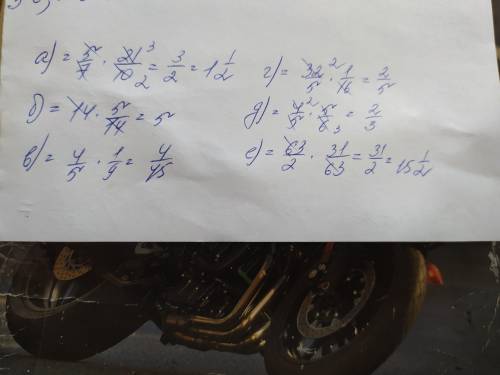 а) = 5/7 · 21/10 = 3/2 = 1 1/2
б) = 14 · 5/14 = 5
в) = 4/5 · 1/9 = 4/45
г) = 32/5 · 1/16 = 2/5
д) = 4/5 · 5/6 = 2/3
е) = 63/2 · 31/63 = 31/2 = 15 1/2